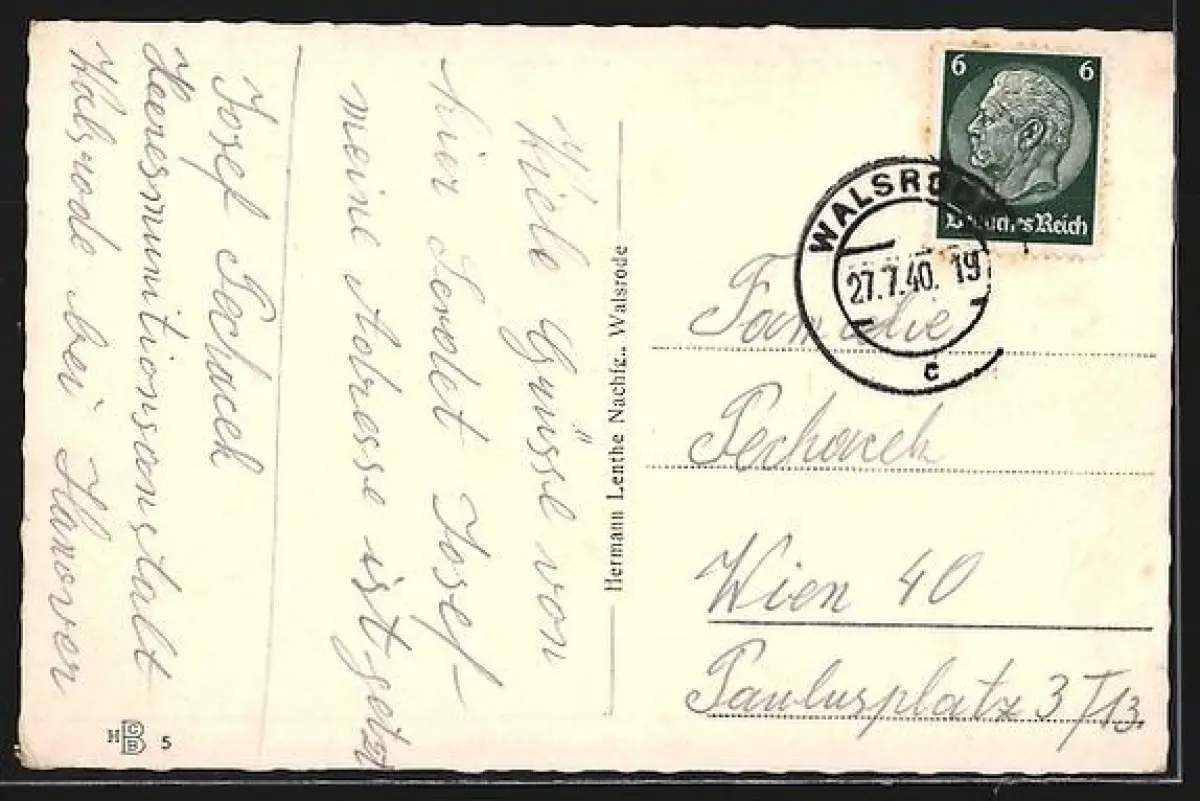 Viele Grüsse von
hier sendet Josef
meine Adresse ist jetzt
Josef Pechacek
Heeresmunitionsanstalt
Walsrode bei Hanover
H CBB 5
Hermann Lenthe Nachfg., Walsrode
6 6
Deutsches Reich
WALSRODE
27.7.40. 19
c
Familie
Pechacek
Wien 40
Paulusplatz 3 I/13